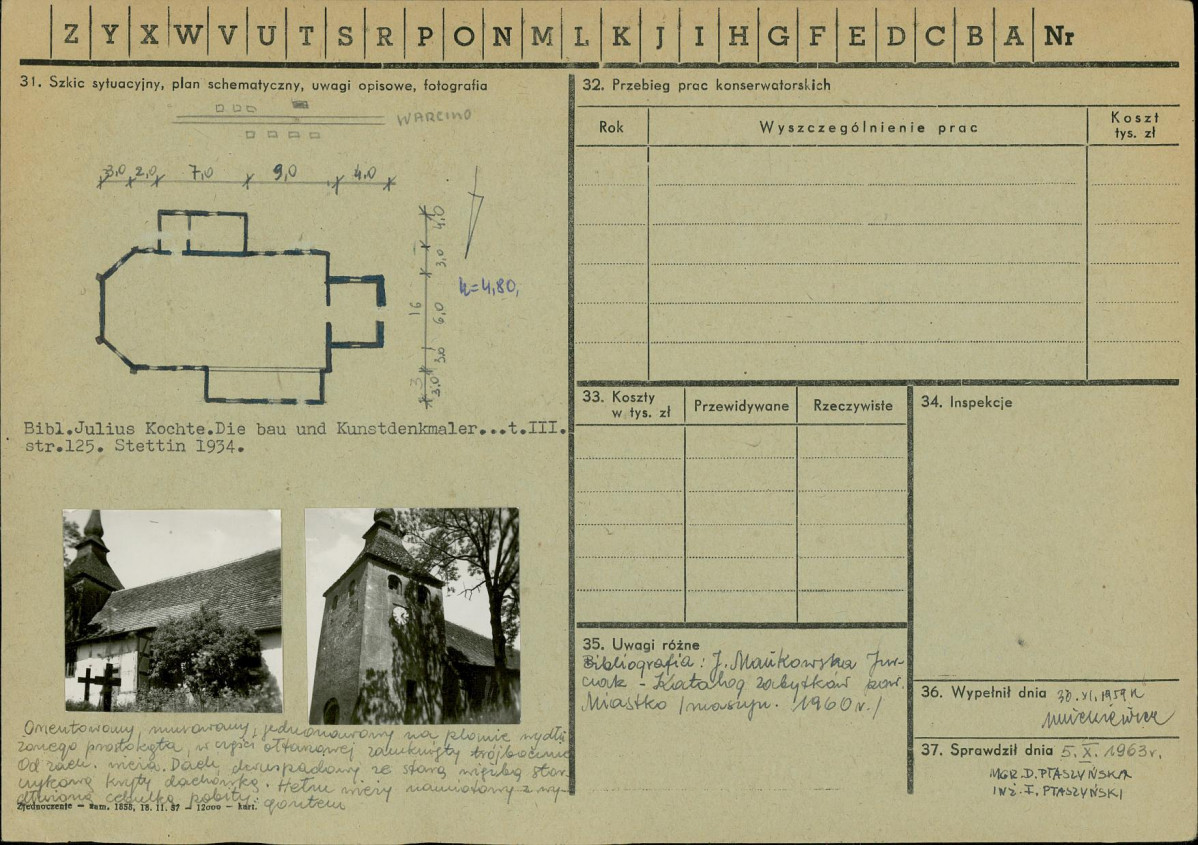 Z Y X W V U T S R P O N M L K J I H G F E D C B A Nr
31. Szkic sytuacyjny, plan schematyczny, uwagi opisowe, fotografia
WARCINO
3,0 2,0 7,0 9,0 4,0
4,0
3,0
16 6,0
3,0
3 3,0
h=4,80,
Bibl.Julius Kochte.Die bau und Kunstdenkmaler...t.III.
str.125. Stettin 1934.
Orientowany, murowany, jednonawowy na planie wydłu
żonego prostokąta, w części ołtarzowej zamknięty trójbocznie
Od zach. wieża. Dach dwuspadowy ze starą więźbą stor
czykową kryty dachówką. Hełm wieży namiotowy z wy-
dłużoną cebulką pobity gontem
Zjednoczenie — zam. 1858, 18. 11. 57 — 12000 — kart.
32. Przebieg prac konserwatorskich
Rok Wyszczególnienie prac Koszt
tys. zł
33. Koszty
w tys. zł Przewidywane Rzeczywiste
34. Inspekcje
35. Uwagi różne
Bibliografia: J. Mańkowska Jur-
czak - Katalog zabytków pow.
Miastko /maszyn. 1960 r./
36. Wypełnił dnia 30.XI.1959 r
37. Sprawdził dnia 5.X.1963r.
MGR. D. PTASZYŃSKA
INŻ. I. PTASZYŃSKI